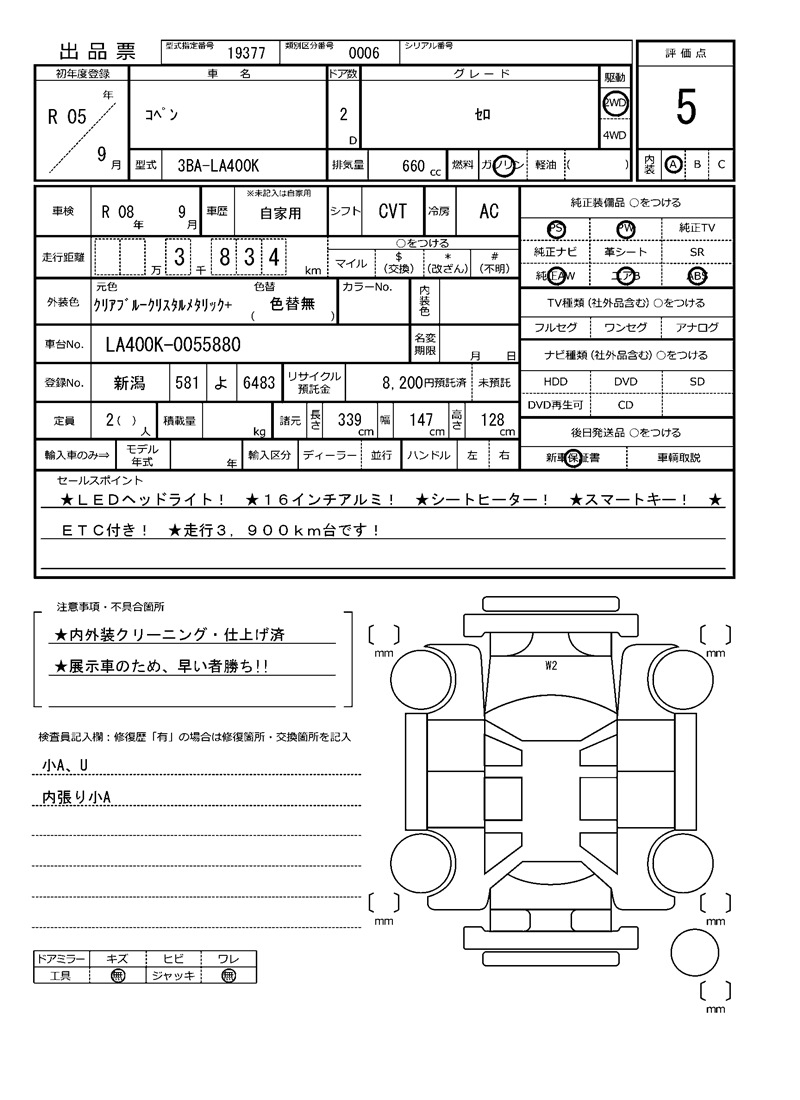 出品票 型式指定番号 19377 類別区分番号 0006 シリアル番号
評価点
5
内装 A B C
初年度登録 車名 ドア数 グレード 駆動
R 05 年 9 月 コペン 2 D セロ 2WD 4WD
型式 3BA-LA400K 排気量 660 cc 燃料 ガソリン 軽油 ( )
車検 R 08 年 9 月 車歴 ※未記入は自家用 自家用 シフト CVT 冷房 AC
走行距離 万 3 千 8 3 4 km ○をつける マイル $ (交換) * (改ざん) # (不明)
外装色 元色 クリアブルークリスタルメタリック+ 色替 ( 色替無 ) カラーNo. 内装色
車台No. LA400K-0055880 名変期限 月 日
登録No. 新潟 581 よ 6483 リサイクル預託金 8,200円預託済 未預託
定員 2( ) 人 積載量 kg 諸元 長さ 339 cm 幅 147 cm 高さ 128 cm
輸入車のみ⇒ モデル年式 年 輸入区分 ディーラー 並行 ハンドル 左 右
純正装備品 ○をつける
PS PW 純正TV
純正ナビ 革シート SR
純正AW エアB ABS
TV種類 (社外品含む) ○をつける
フルセグ ワンセグ アナログ
ナビ種類 (社外品含む) ○をつける
HDD DVD SD
DVD再生可 CD
後日発送品 ○をつける
新車保証書 車輌取説
セールスポイント
★LEDヘッドライト! ★16インチアルミ! ★シートヒーター! ★スマートキー! ★
ETC付き! ★走行3,900km台です!
注意事項・不具合箇所
★内外装クリーニング・仕上げ済
★展示車のため、早い者勝ち!!
検査員記入欄:修復歴「有」の場合は修復箇所・交換箇所を記入
小A、U
内張り小A
ドアミラー キズ ヒビ ワレ
工具 無 ジャッキ 無
mm mm
W2
mm mm
mm